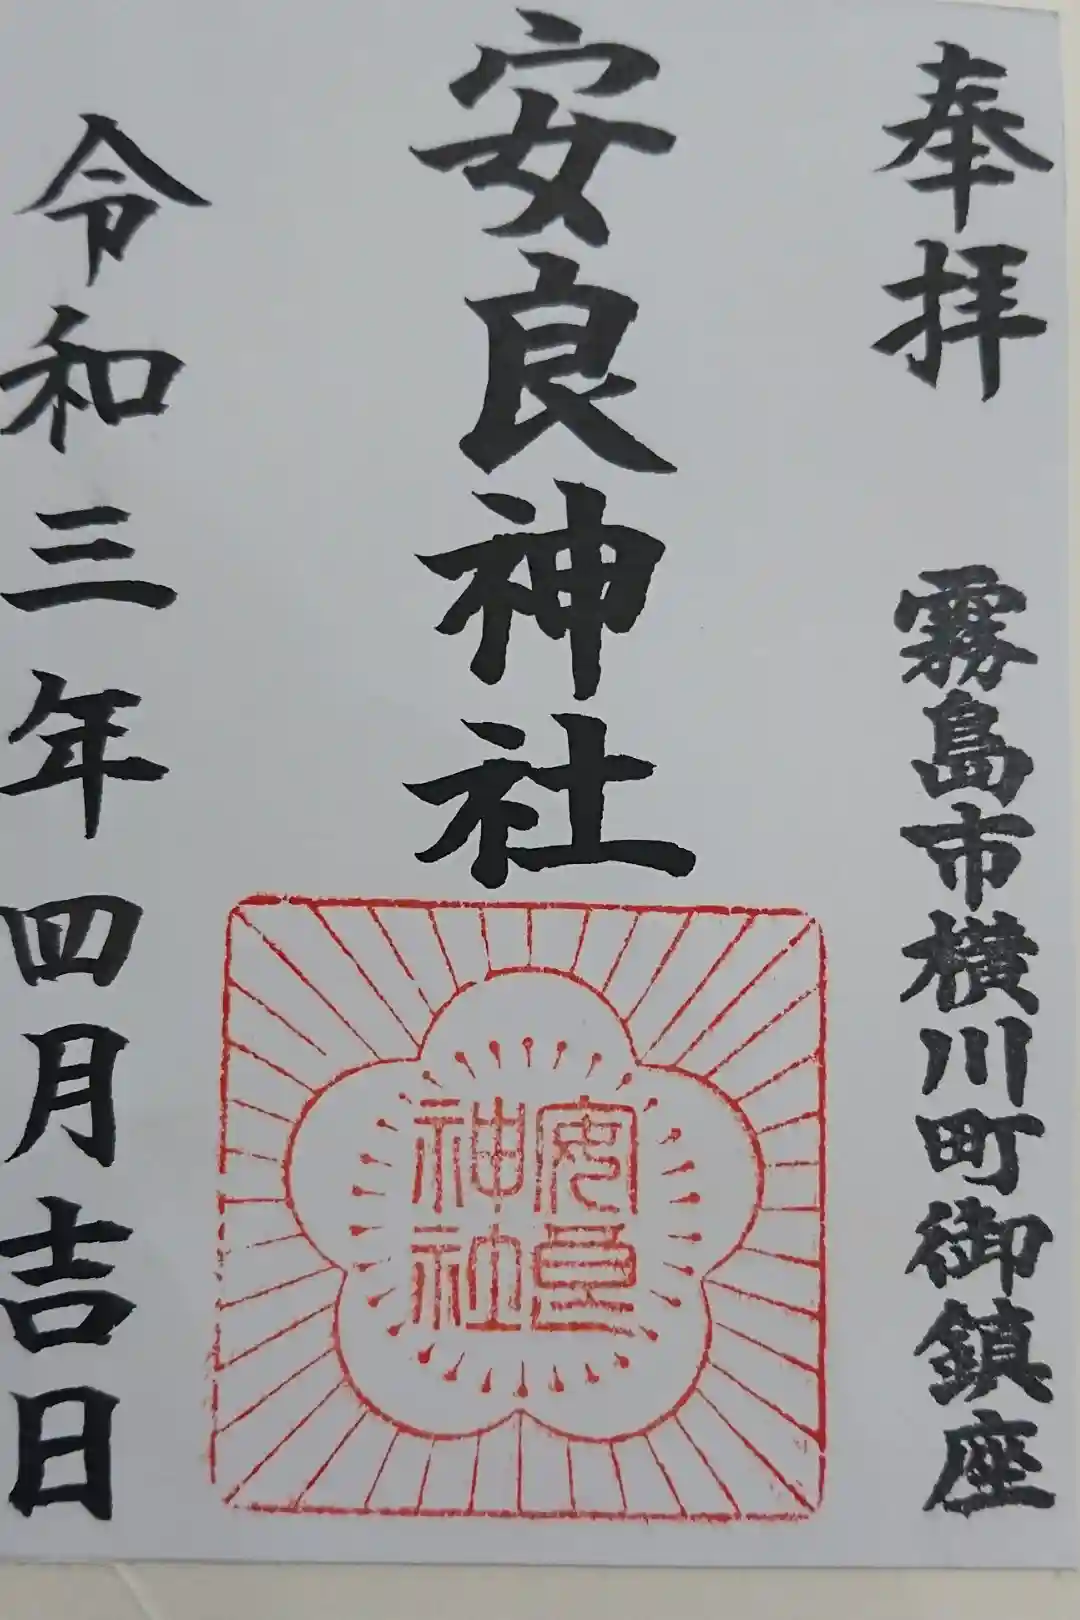 奉拝 霧島市横川町御鎮座
安良神社
安良
神社
令和三年四月吉日